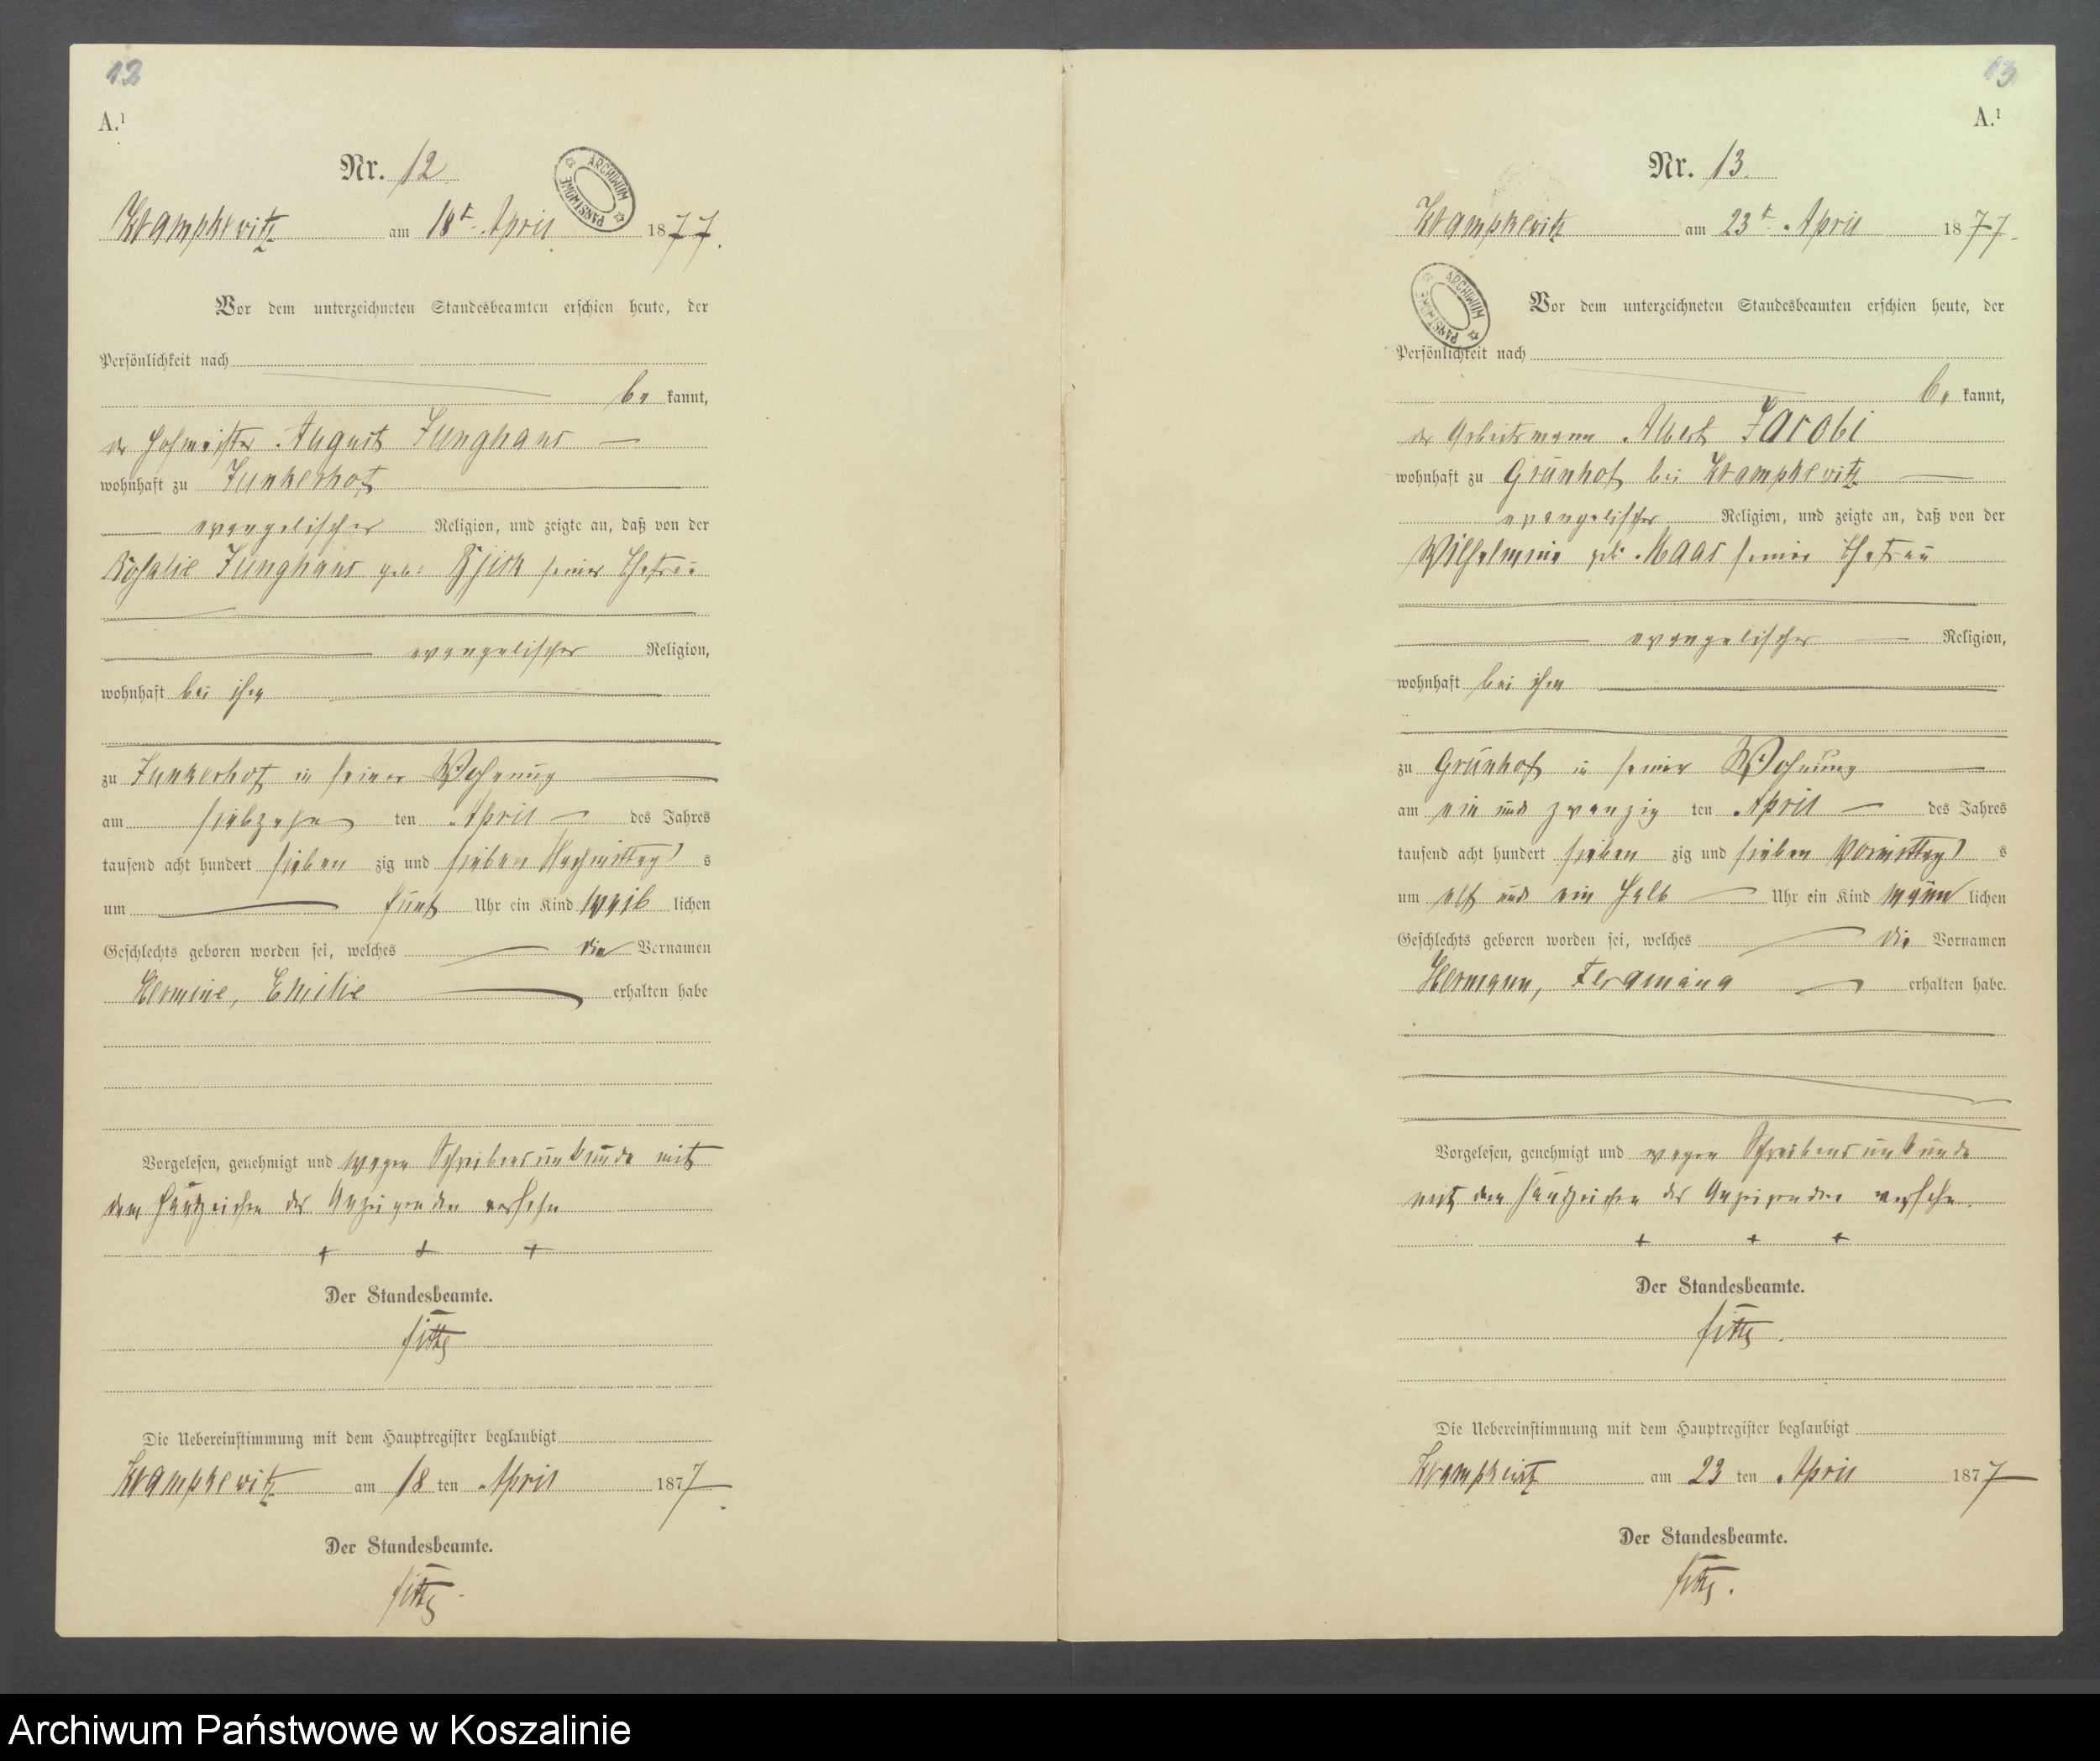 12
A.¹
Nr. 12
ARCHIWUM PAŃSTWOWE
Krampkewitz am 18t. April 1877.
Vor dem unterzeichneten Standesbeamten erschien heute, der
Persönlichkeit nach
be kannt,
der Hofmeister August Junghans
wohnhaft zu Junkerhof
evangelischer Religion, und zeigte an, daß von der
Rosalie Junghans geb: seiner Ehefrau
evangelischer Religion,
wohnhaft bei ihm
zu Junkerhof in seiner Wohnung
am siebzehn ten April des Jahres
tausend acht hundert sieben zig und sieben Nachmittag s
um fünf Uhr ein Kind weib lichen
Geschlechts geboren worden sei, welches die Vornamen
Hermine, Emilie erhalten habe
Vorgelesen, genehmigt und wegen Schreibensunkunde mit
dem Handzeichen des Anzeigenden versehn
+ + +
Der Standesbeamte.
Die Uebereinstimmung mit dem Hauptregister beglaubigt
Krampkewitz am 18 ten April 1877.
Der Standesbeamte.
13
A.¹
Nr. 13.
Krampkewitz am 23t. April 1877.
ARCHIWUM PAŃSTWOWE
Vor dem unterzeichneten Standesbeamten erschien heute, der
Persönlichkeit nach
be kannt,
der Arbeitsmann Albert Jacobi
wohnhaft zu Grünhof bei Krampkewitz
evangelischer Religion, und zeigte an, daß von der
Wilhelmine geb. Maas seiner Ehefrau
evangelischer Religion,
wohnhaft bei ihm
zu Grünhof in seiner Wohnung
am ein und zwanzig ten April des Jahres
tausend acht hundert sieben zig und sieben Vormittag s
um elf und ein halb Uhr ein Kind männ lichen
Geschlechts geboren worden sei, welches die Vornamen
Hermann, erhalten habe.
Vorgelesen, genehmigt und wegen Schreibensunkunde
mit dem Handzeichen des Anzeigenden versehn.
+ + +
Der Standesbeamte.
Die Uebereinstimmung mit dem Hauptregister beglaubigt
Krampkewitz am 23 ten April 1877
Der Standesbeamte.
Archiwum Państwowe w Koszalinie